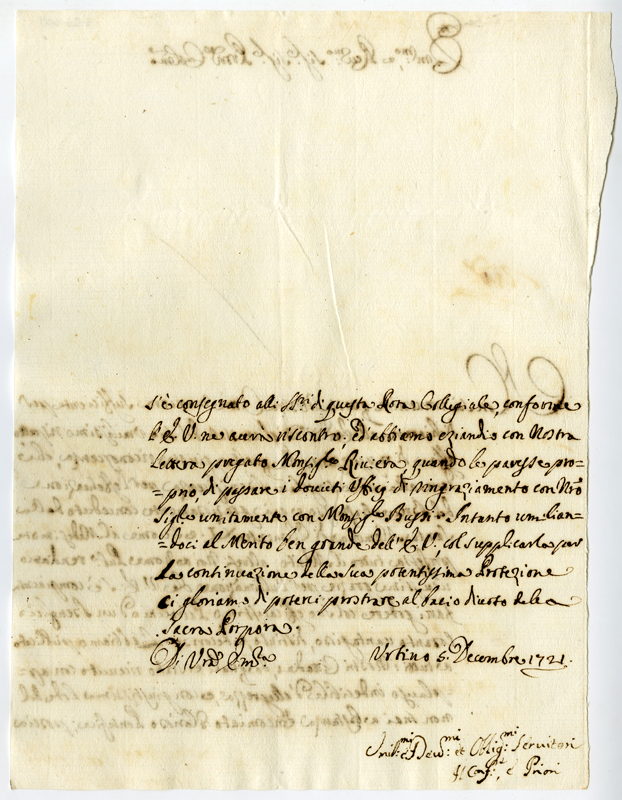 s'è consegnato alli SS.ri di questa Rota Collegiale, conforme
l'E. V. ne averà riscontro; ed abbiamo eziandio con Nostra
Lettera pregato Monsig.re Riviera, quando le paresse pro=
=prio, di passare i dovuti Uffici di ringraziamento con Nro
Sig.re unitamente con Monsig.re Bussi. Intanto umilian=
=doci al Merito ben grande dell' E. V., col supplicarla per
La continuazione della sua potentissima Protezione
ci gloriamo di poterci prostrare al bacio divoto della
Sacra Porpora.
Di Vra Em.za Urbino 5. Decembre 1721.
Umil.mi e Dev.mi et Oblig.mi Servitori
Il Conf.re, e Priori